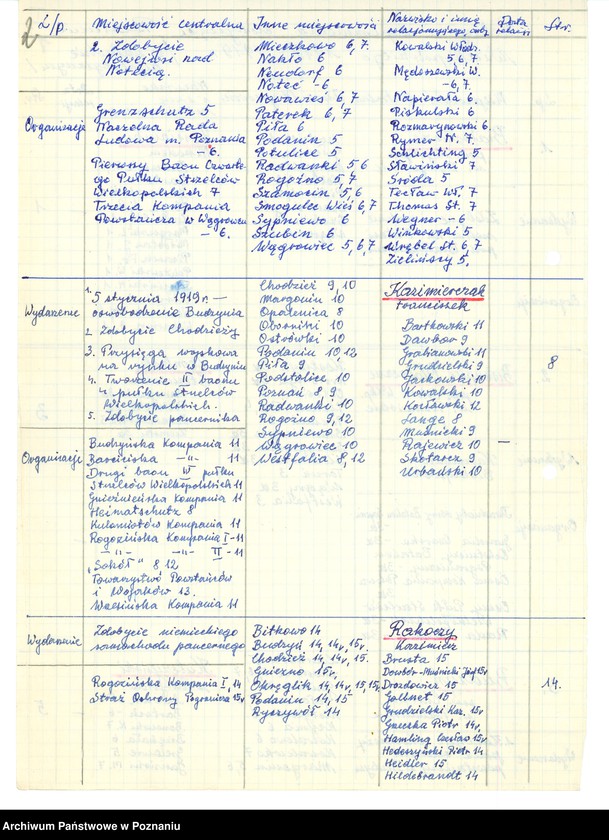 2
L/p Miejscowość centralna Inne miejscowości Nazwisko i imię Data Str.
2. Zdobycie
Nowejwsi nad
Notecią.
Organizacje
Grenzschutz 5
Naczelna Rada
Ludowa m. Poznania
- 6.
Pierwszy Baon Czwarte-
go Pułku Strzelców
Wielkopolskich 7
Trzecia Kompania
Powstańcza w Wągrowcu
- 6.
Mieczkowo 6, 7.
Nakło 6
Neudorf 6
Noteć - 6
Nowawieś 6, 7
Paterek 6, 7
Piła 6
Podanin 5
Potulice 5
Radwanki 5, 6
Rogoźno 5, 7
Szamocin 5, 6
Smogulec Wieś 6, 7
Sypniewo 6
Szubin 6
Wągrowiec 5, 6, 7
Kowalski Włodz.
5, 6, 7
Mędoszewski W.
- 6, 7.
Napierała 6
Piskulski 6
Rozmarynowski 6
Rymer N. 7.
Schlichting 5
Sławiński 7
Środła 5
Tecław Wł. 7
Thomas St. 7
Wegner - 6
Winkowski 5
Wrębel St. 6, 7
Zieliński 5.
Wydarzenie
1. 5 stycznia 1919 r. -
oswobodzenie Budzynia
2. Zdobycie Chodzieży
3. Przysięga wojskowa
na rynku w Budzyniu
4. Tworzenie II baonu
4 pułku strzelców
Wielkopolskich.
5. Zdobycie pancernika
Organizacje
Budzyńska Kompania 11
Barcińska -"- 11
Drugi baon IV pułku
Strzelców Wielkopolskich 11
Gnieźnieńska Kompania 11
Heimatschutz 8
Kulomiotów Kompania 11
Rogozińska Kompania I - 11
-"- -"- II - 11
"Sokół" 8, 12
Towarzystwo Powstańców
i Wojaków 13.
Wolsińska Kompania 11
Chodzież 9, 10
Margonin 10
Opalenica 8
Oborniki 10
Ostrówki 10
Podanin 10, 12
Piła 9
Podstolice 10
Poznań 8, 9
Radwanki 10
Rogoźno 9, 12
Sypniewo 10
Wągrowiec 10
Westfalia 8, 12
Kazimierczak
Franciszek
Bartkowski 11
Dawbor 9
Grabianowski 11
Grudzielski 9
Jaskowski 10
Kowalski 10
Kozłowski 12
Lange 8
Muśnicki 9
Rajewicz 10
Skotarcz 9
Urbański 10
—
8
Wydarzenie
Zdobycie niemieckiego
samochodu pancernego
Rogozińska Kompania I, 14
Straż Ochrony Pogranicza 15v
Bitkowo 14
Budzyń 14, 14v, 15v.
Chodzież 14, 14v, 15.
Gniezno 15v.
Okręglik 14, 14v, 15, 15v
Podanin 14, 15
Ryszywół 14
Rakoczy
Kazimierz
Brusta 15
Dowbór-Muśnicki Józef 15v
Drozdowicz 15
Golbnet 15
Grudzielski Kaz. 15v
Gruszka Piotr 14v.
Hamling Czesław 15v
Hederzyński Piotr 14
Heidler 15
Hildebrandt 14
14.
Archiwum Państwowe w Poznaniu